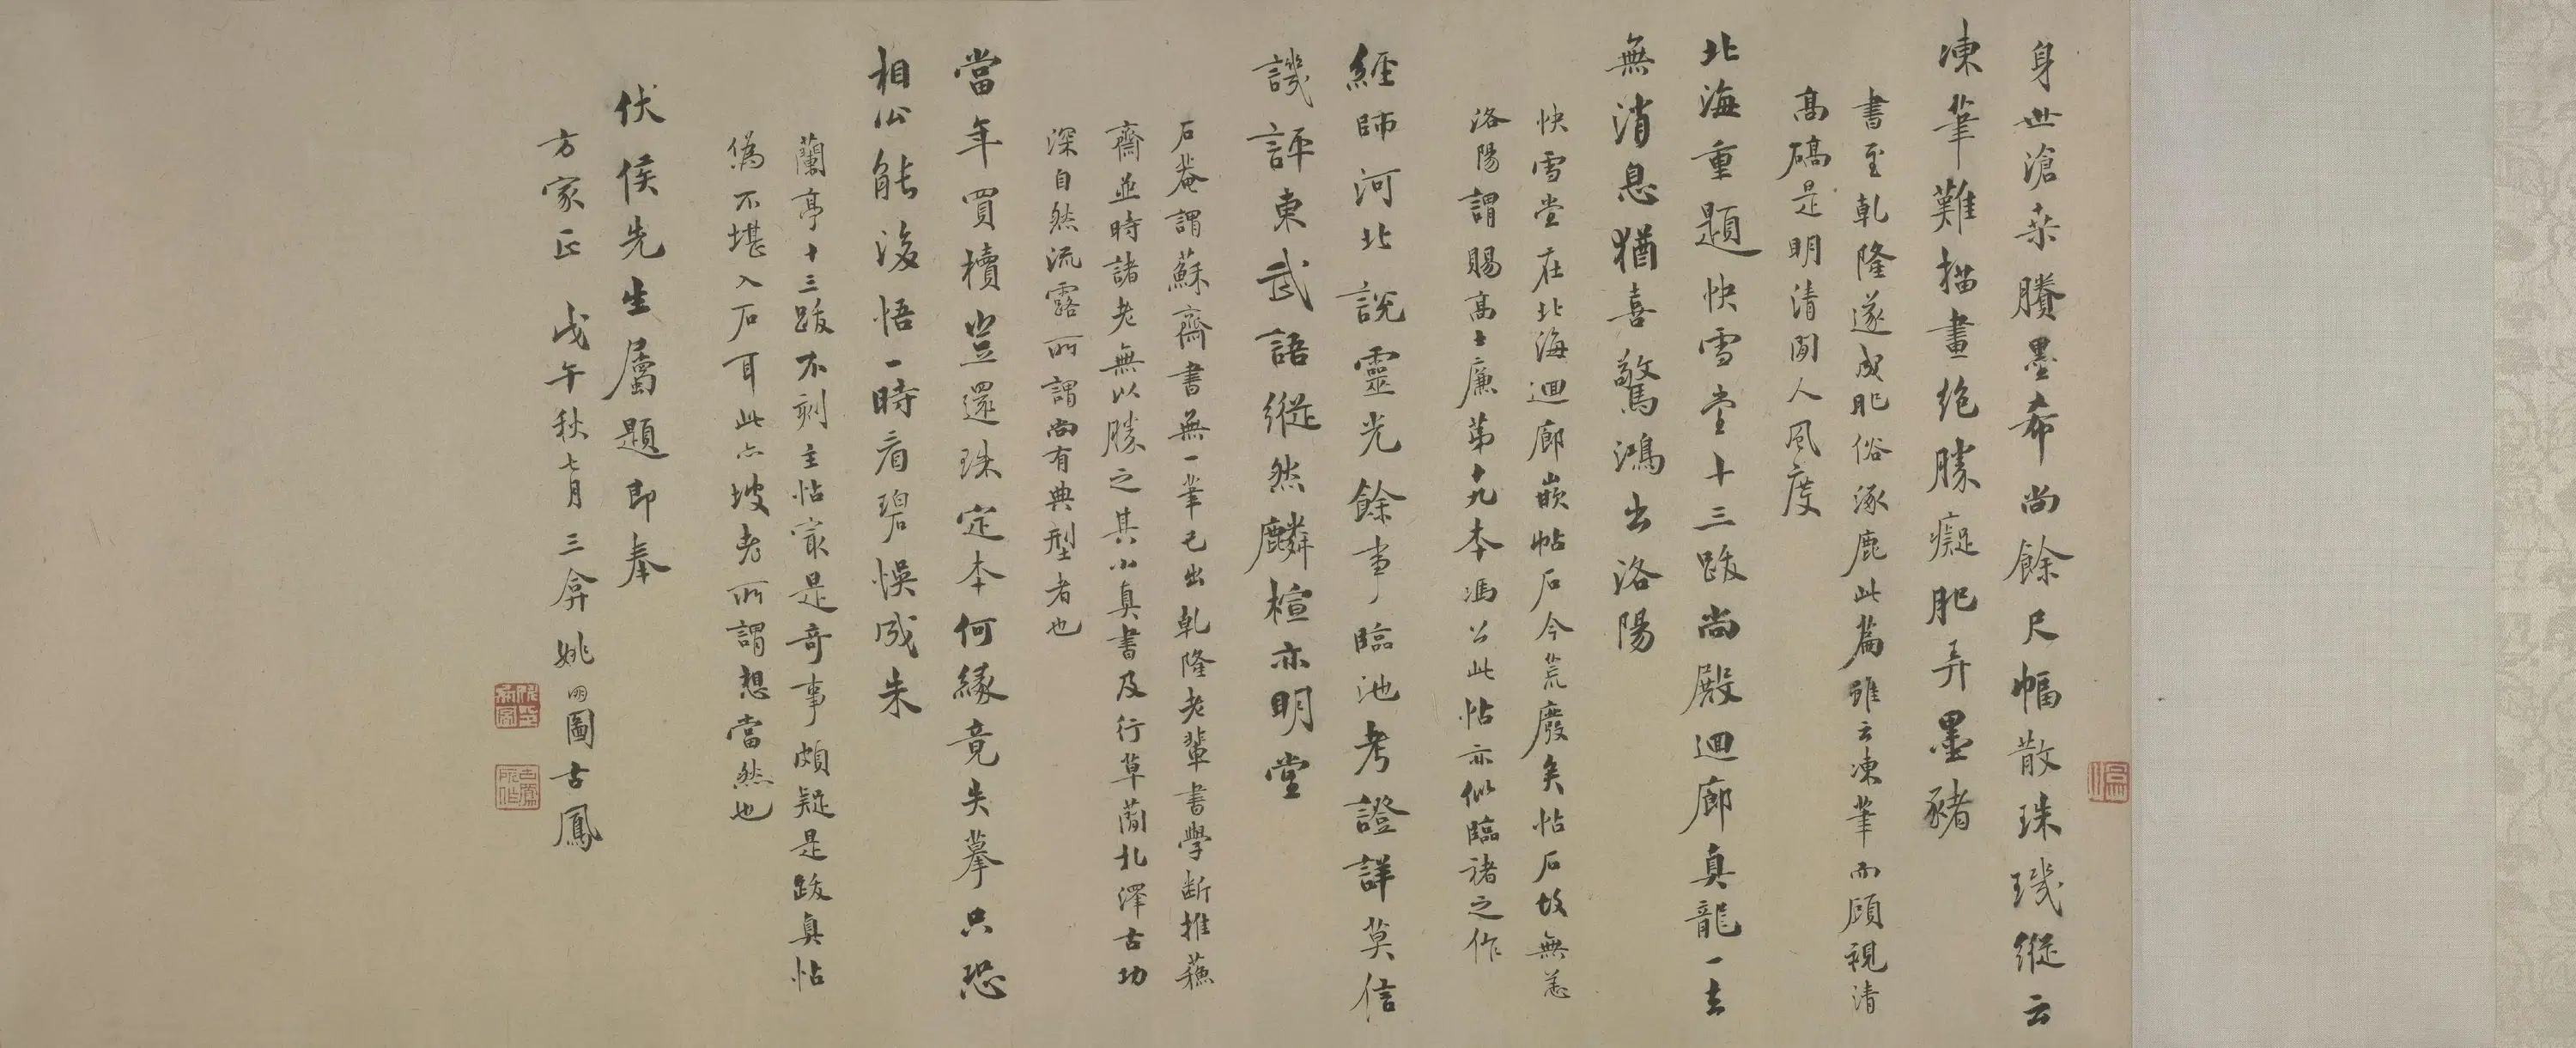 身世滄桑賸墨希尚餘尺幅散珠璣縱云
凍筆難描畫絶勝癡肥弄墨豬
書至乾隆遂成肥俗涿鹿此篇雖云凍筆而顧視清
高礄是明清間人風度
北海重題快雪堂十三跋尚殿迴廊真龍一去
無消息猶喜驚鴻出洛陽
快雪堂在北海迴廊嵌帖石今荒廢矣帖石故無恙
洛陽謂賜高士廉第九本馮公此帖亦似臨褚之作
經師河北說靈光餘事臨池考證詳莫信
譏評東武語縱然麟楦亦明堂
石菴謂蘇齋書無一筆己出乾隆老輩書學斷推蘇
齋並時諸老無以勝之其小真書及行草簡札澤古功
深自然流露所謂尚有典型者也
當年買櫝豈還珠定本何緣竟失摹只恐
相公能後悟一時看碧悞成朱
蘭亭十三跋不刻主帖最是奇事頗疑是跋真帖
偽不堪入石耳此亦坡老所謂想當然也
伏侯先生屬題即奉
方家正 戊午秋七月三弇姚朙圖古鳳